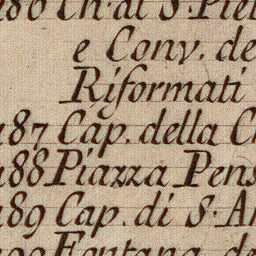 186 Ch. di S. Pier
e Conv. de
Riformati
187 Cap. della C
188 Piazza Pens
189 Cap. di S. A
190 Fontana de